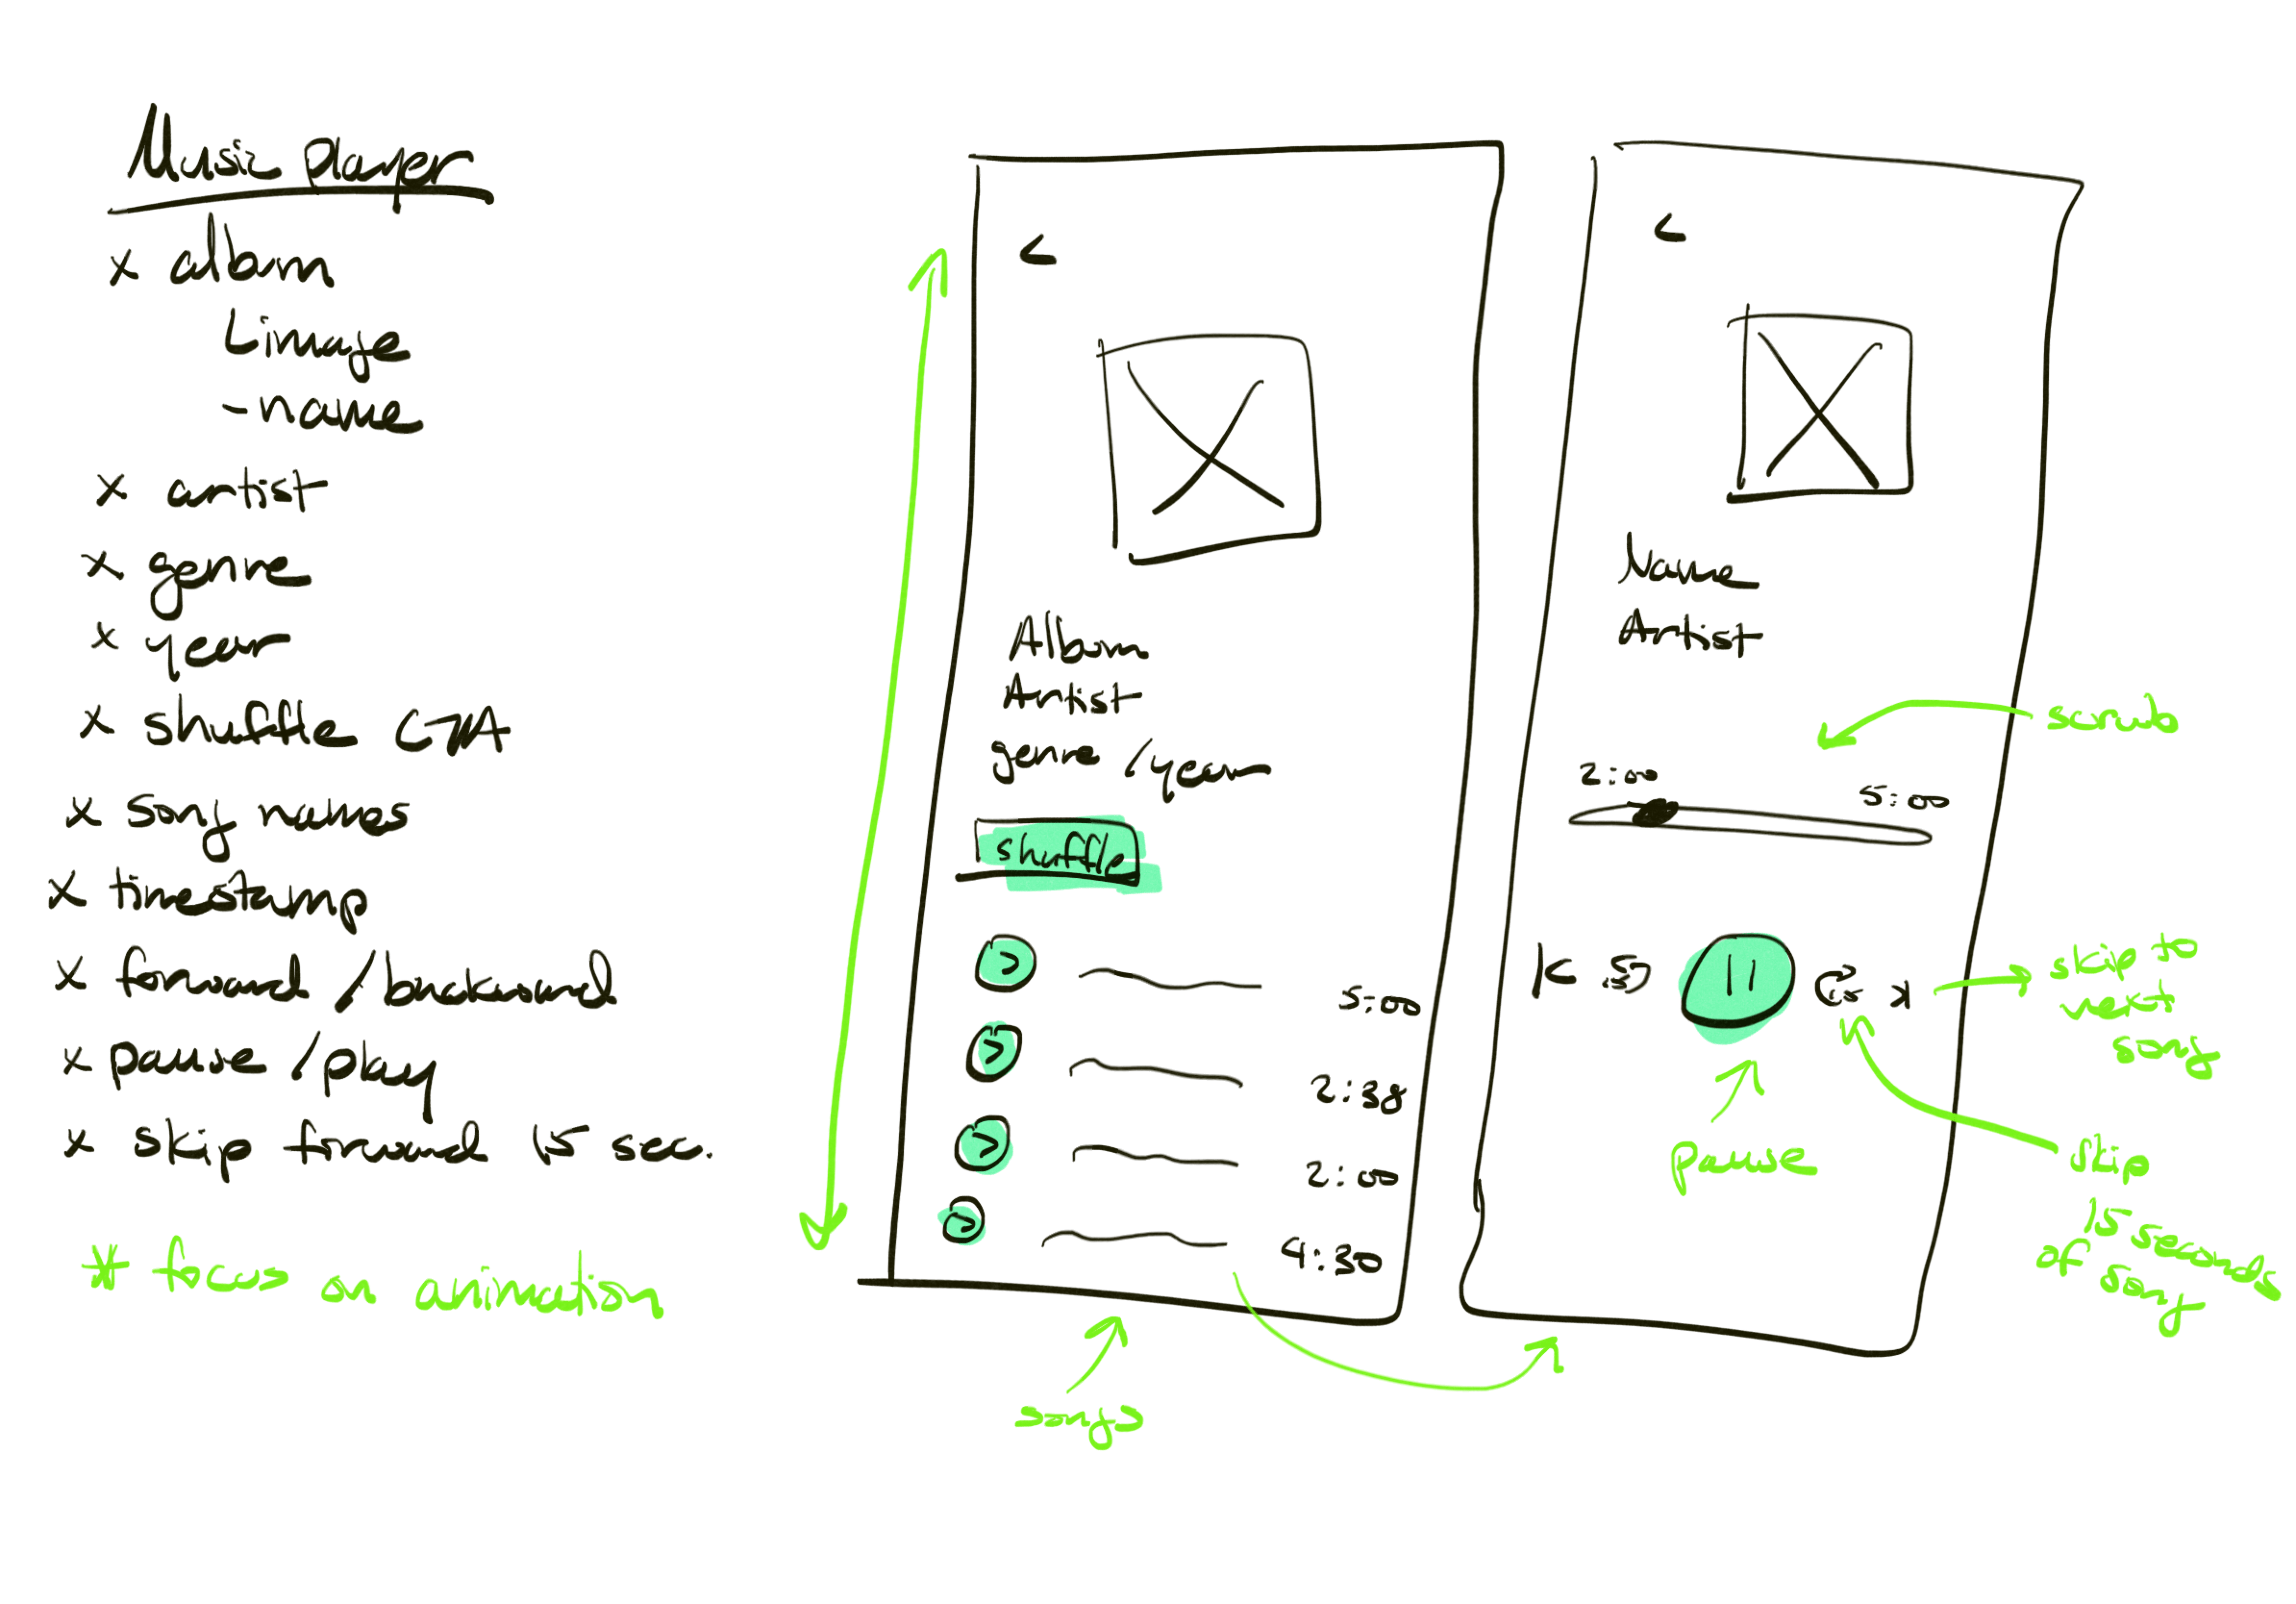 Music player
x album
L image
- name
x artist
x genre
x year
x shuffle CTA
x song names
x timestamp
x forward / backward
x pause / play
x skip forward 15 sec.
* focus on animation
<
Album
Artist
genre / year
shuffle
> 5:00
> 2:38
> 2:00
> 4:30
songs
<
Name
Artist
scrub
2:00 5:00
15 15
skip to
next
song
pause
skip
15 seconds
of song